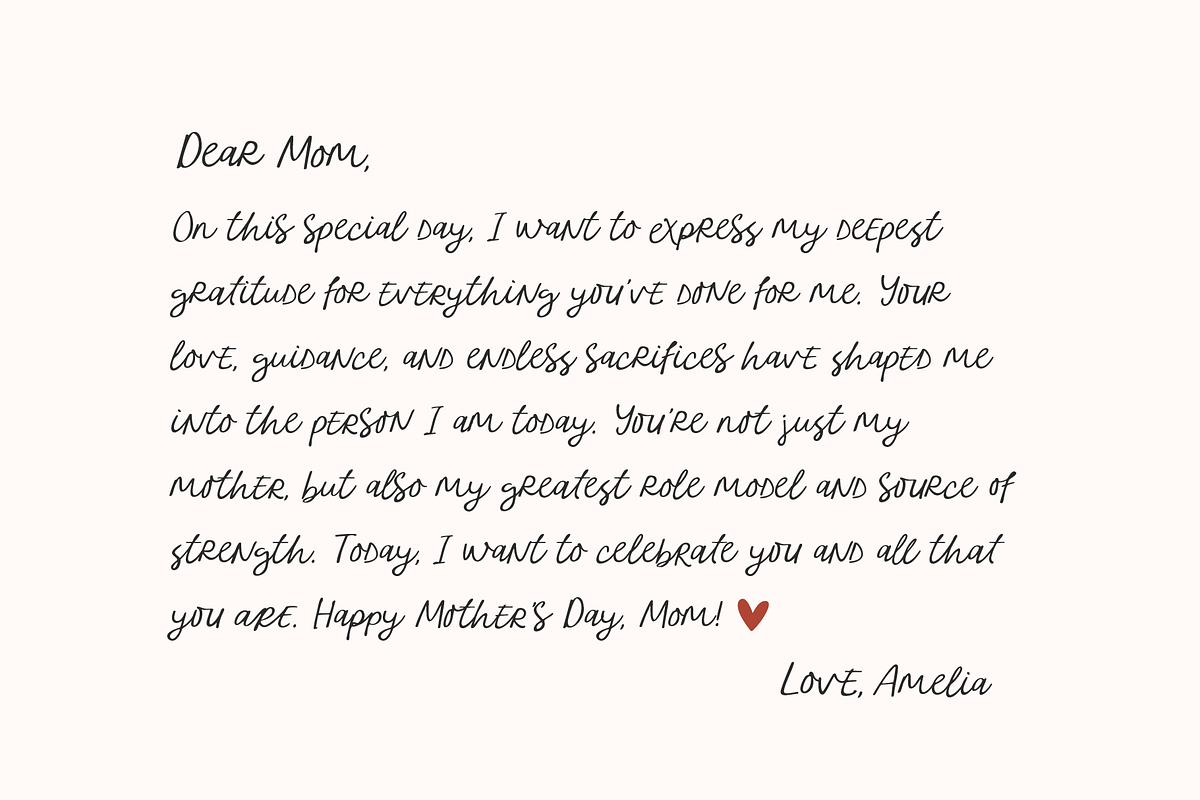 Dear Mom,
On this special day, I want to express my deepest
gratitude for everything you've done for me. Your
love, guidance, and endless sacrifices have shaped me
into the person I am today. You're not just my
mother, but also my greatest role model and source of
strength. Today, I want to celebrate you and all that
you are. Happy Mother's Day, Mom! ❤
Love, Amelia